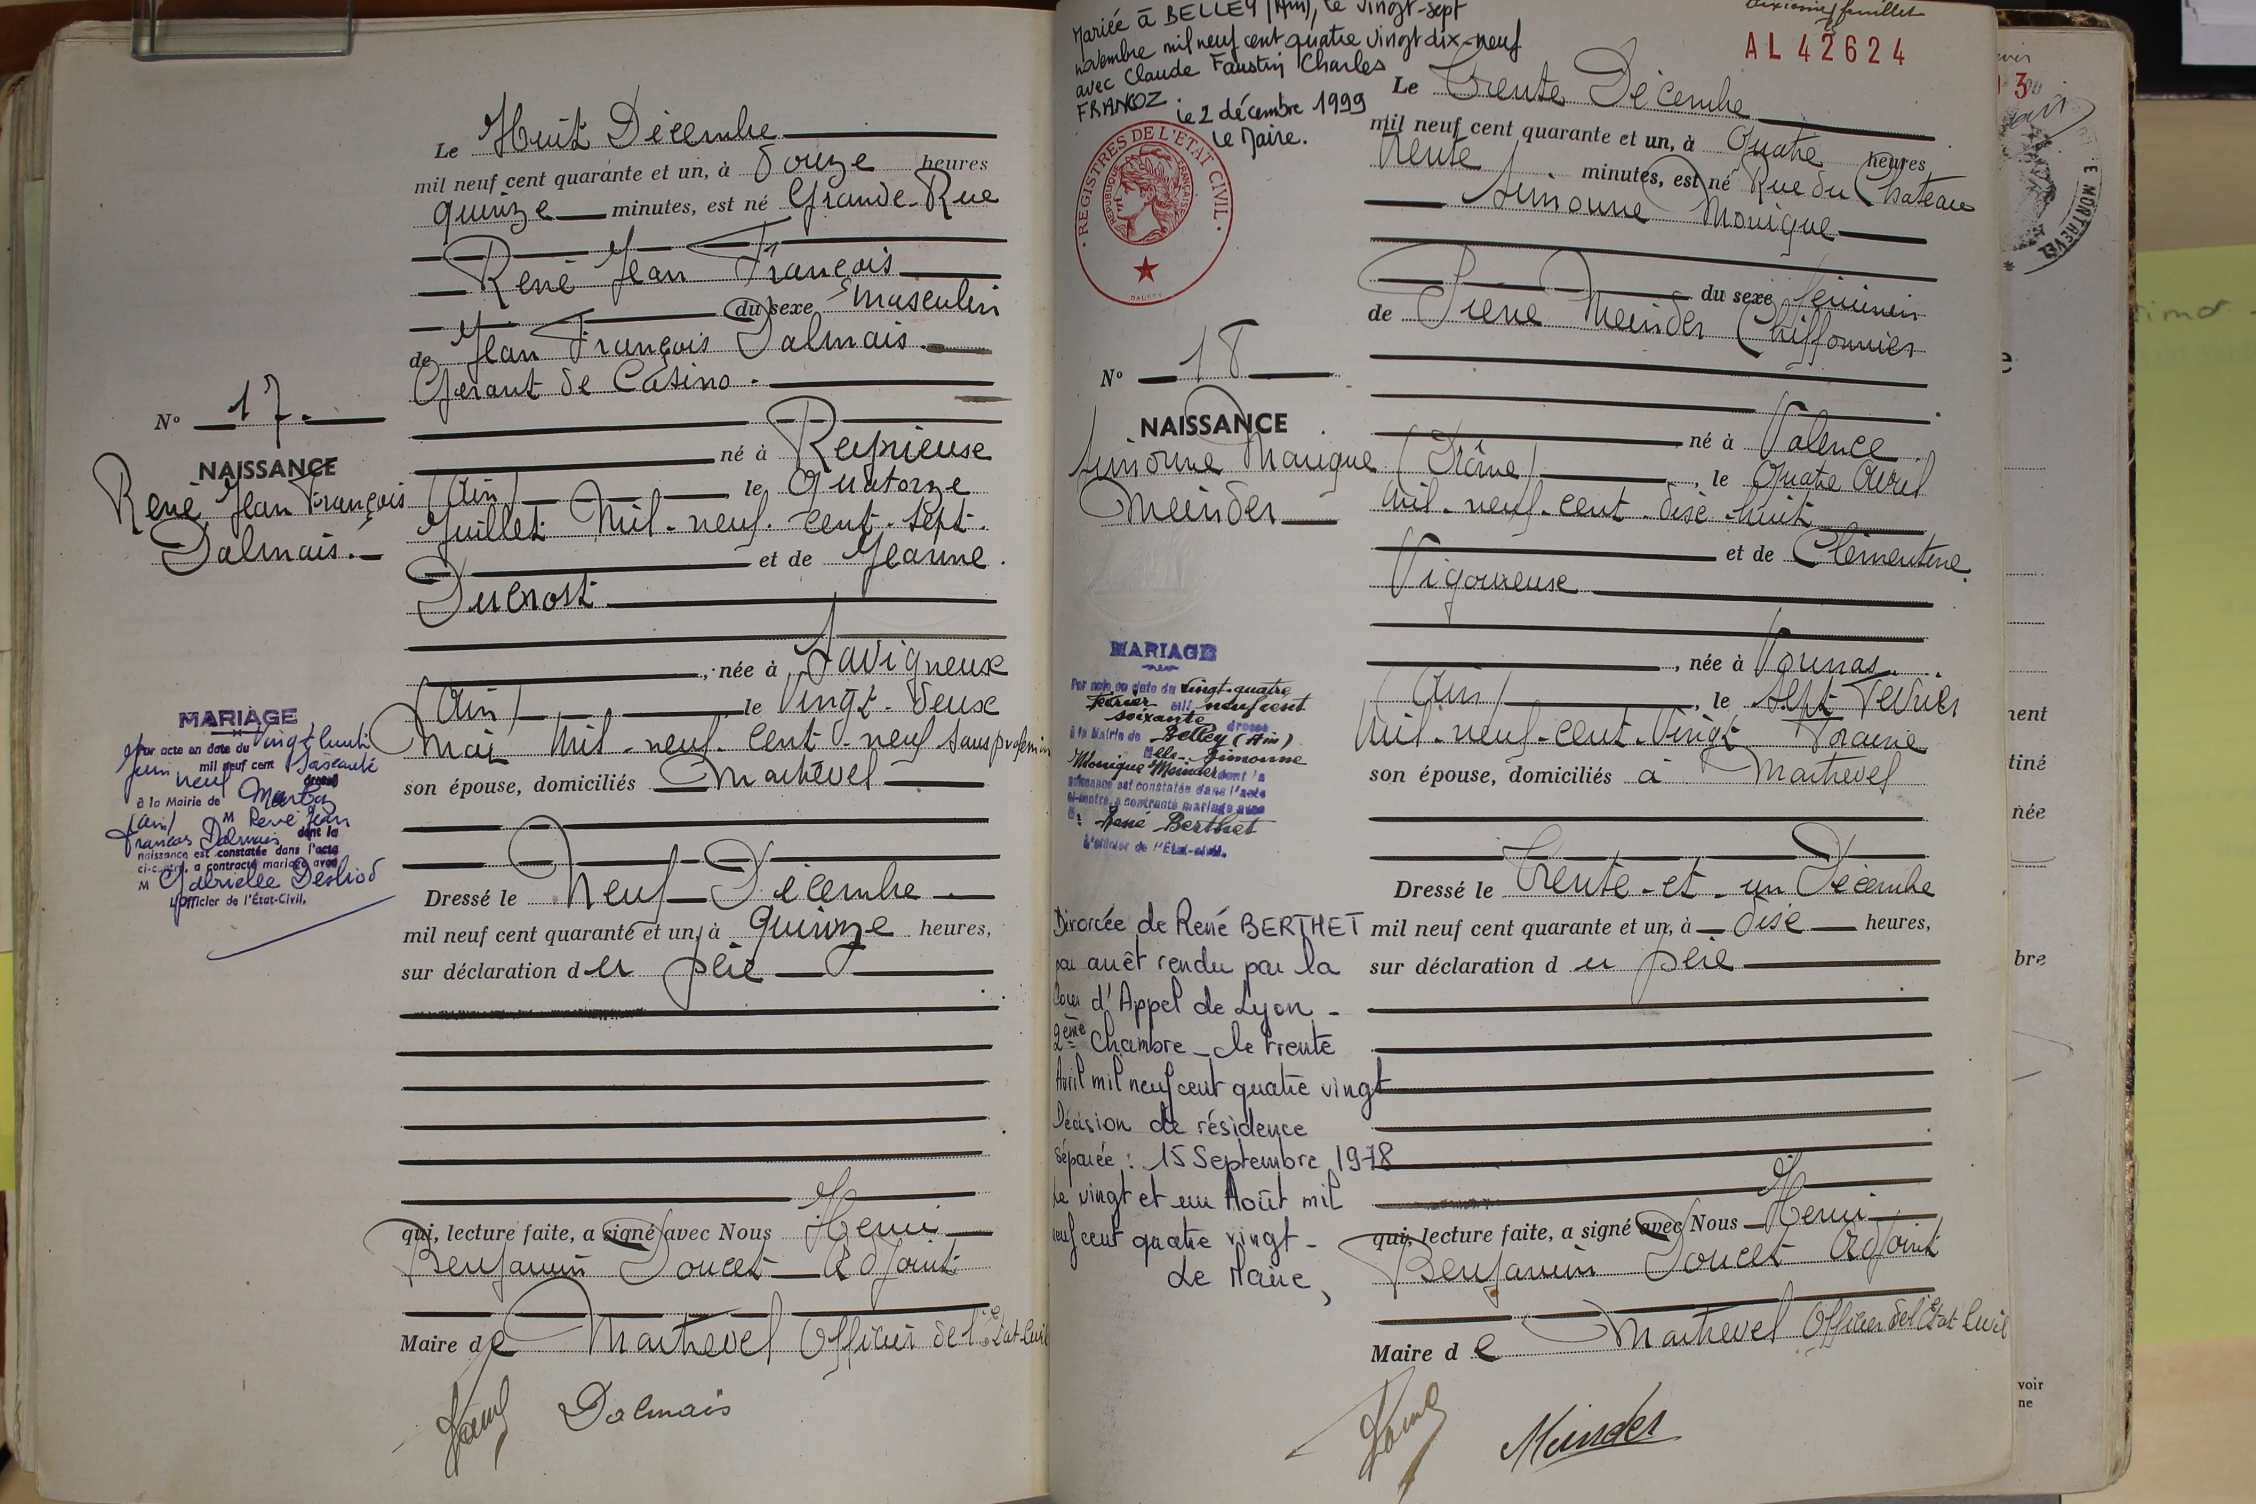 Le Huit Décembre
mil neuf cent quarante et un, à douze heures
quinze minutes, est né Grande-Rue
René Jean François
du sexe masculin
de Jean François Dalmais
Gérant de Casino.
né à Reyrieuse
(Ain) le Quatorze
Juillet Mil-neuf-cent-sept.
et de Jeanne
Ducrost
, née à Savigneuse
(Ain) le Vingt-deux
Mai Mil-neuf-cent-neuf sans profession
son épouse, domiciliés Montrevel
Dressé le Neuf Décembre
mil neuf cent quarante et un, à quinze heures,
sur déclaration du père
qui, lecture faite, a signé avec Nous Henri
Benjamin Doucet Adjoint
Maire de Montrevel Officier de l'Etat Civil
Dalmais
N° 17.
NAISSANCE
René Jean François
Dalmais.
MARIAGE
Par acte en date du Vingt huit
Juin mil neuf cent soixante
neuf dressé
à la Mairie de
(Ain) M René Jean
François Dalmais dont la
naissance est constatée dans l'acte
ci-contre, a contracté mariage avec
M Gabrielle
L'Officier de l'État-Civil,
Mariée à BELLEY (Ain), le vingt-sept
novembre mil neuf cent quatre vingt dix-neuf
avec Claude Faustin Charles
FRANCOZ.
le 2 décembre 1999
Le Maire.
REGISTRES DE L'ETAT CIVIL
REPUBLIQUE FRANÇAISE
dixième feuillet
AL 42624
Le Trente Décembre
mil neuf cent quarante et un, à Quatre heures
trente minutes, est né Rue du Château
Simonne Monique
du sexe féminin
de Pierre Meinder Chiffonnier
né à Valence
(Drôme), le Quatre Avril
Mil-neuf-cent-dix-huit
et de Clémentine
Vigoureuse
, née à Vounas
(Ain), le Sept Février
Mil-neuf-cent-Vingt Foraine
son épouse, domiciliés à Montrevel
Dressé le Trente-et-un Décembre
mil neuf cent quarante et un, à dix heures,
sur déclaration du père
qui, lecture faite, a signé avec Nous Henri
Benjamin Doucet Adjoint
Maire de Montrevel Officier de l'Etat Civil
Meinder
N° 18
NAISSANCE
Simonne Monique
Meinder
MARIAGE
Par acte en date du vingt-quatre
Février mil neuf cent
soixante dressé
à la Mairie de Belley (Ain)
Melle Simonne
Monique Meinder dont la
naissance est constatée dans l'acte
ci-contre, a contracté mariage avec
M: René Berthet
L'Officier de l'État-civil.
Divorcée de René BERTHET
par arrêt rendu par la
Cour d'Appel de Lyon -
2ème Chambre - le trente
Avril mil neuf cent quatre vingt
Décision de résidence
séparée : 15 Septembre 1978
Le vingt et un Août mil
neuf cent quatre vingt -
Le Maire,
E MONTREVEL
nent
tiné
née
bre
voir
ne